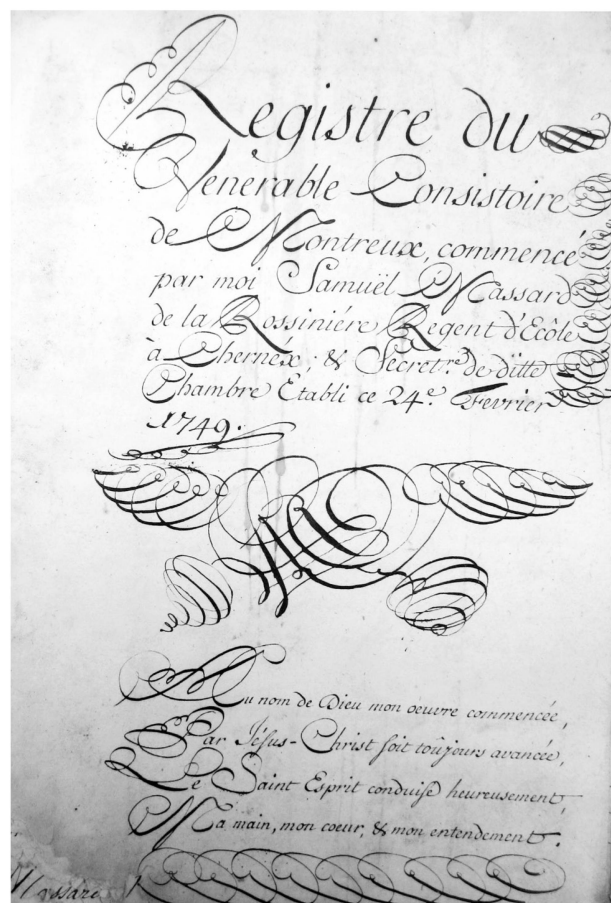 Registre du
Venerable Consistoire
de Montreux, commencé
par moi Samuël Massard
de la Rossiniére Regent d'Ecôle
à Chernéx; & Secret.re de ditte
Chambre Etabli ce 24.e Fevrier
1749.
Au nom de Dieu mon oeuvre commencée,
Par Jésus-Christ soit toûjours avancée,
Le Saint Esprit conduise heureusement,
Ma main, mon coeur, & mon entendement.